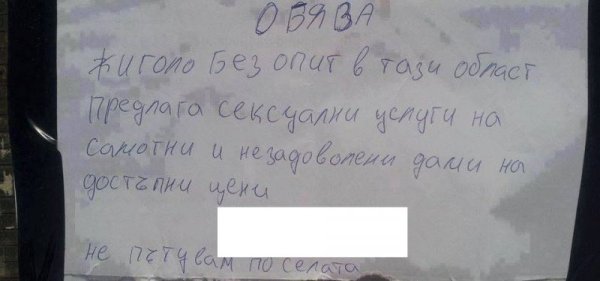 ОБЯВА
ЖИГОЛО БЕЗ ОПИТ В ТАЗИ ОБЛАСТ
ПРЕДЛАГА СЕКСУАЛНИ УСЛУГИ НА
САМОТНИ И НЕЗАДОВОЛЕНИ ДАМИ НА
ДОСТЪПНИ ЦЕНИ
НЕ ПЪТУВАМ ПО СЕЛАТА